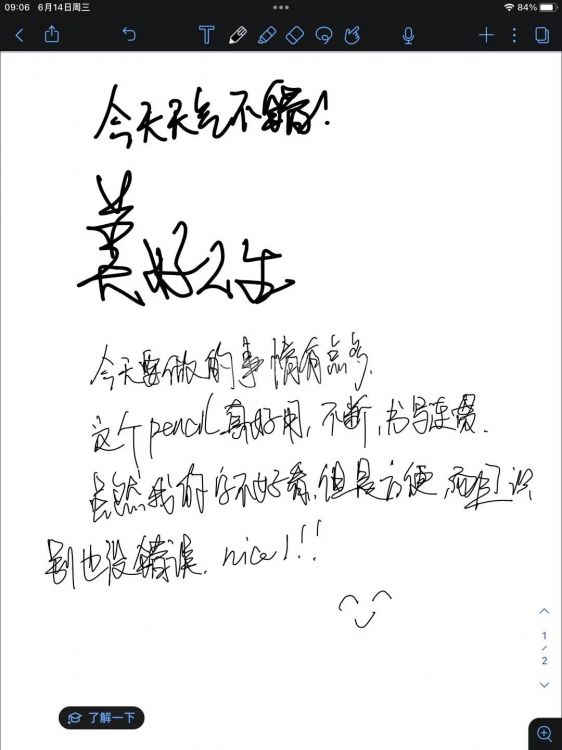 09:06 6月14日周三 84%
今天天气不错!
美好人生
今天要做的事情有点多.
这个pencil真好用,不断,书写连贯.
虽然我的字不好看.但是方便,而且识
别也没错误. nice!!!
1
/
2
了解一下